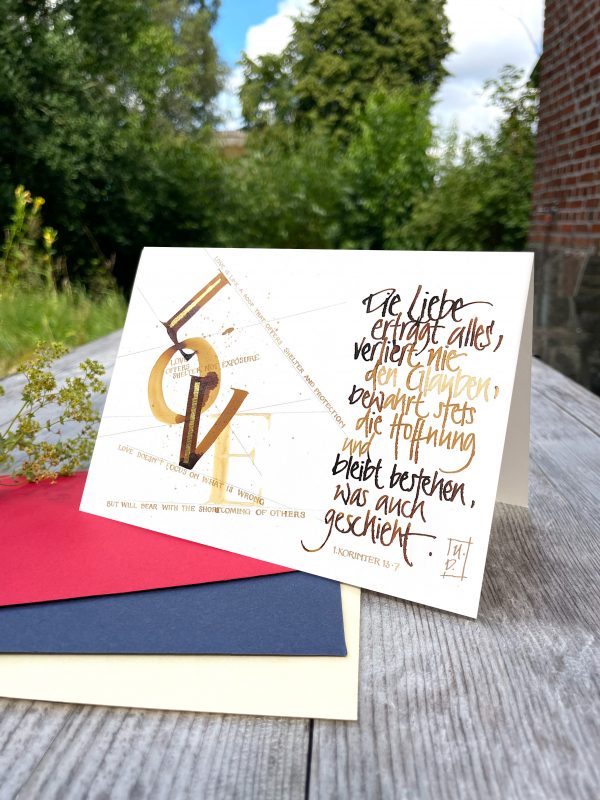 LOVE IS LIKE A ROOF THAT OFFERS SHELTER AND PROTECTION
LOVE
LOVE
OFFERS
SHELTER NOT EXPOSURE
LOVE DOESN'T FOCUS ON WHAT IS WRONG
BUT WILL BEAR WITH THE SHORTCOMING OF OTHERS
Die Liebe
erträgt alles,
verliert nie
den Glauben,
bewahrt stets
die Hoffnung
und
bleibt bestehen,
was auch
geschieht.
1. KORINTER 13·7
U.
D.